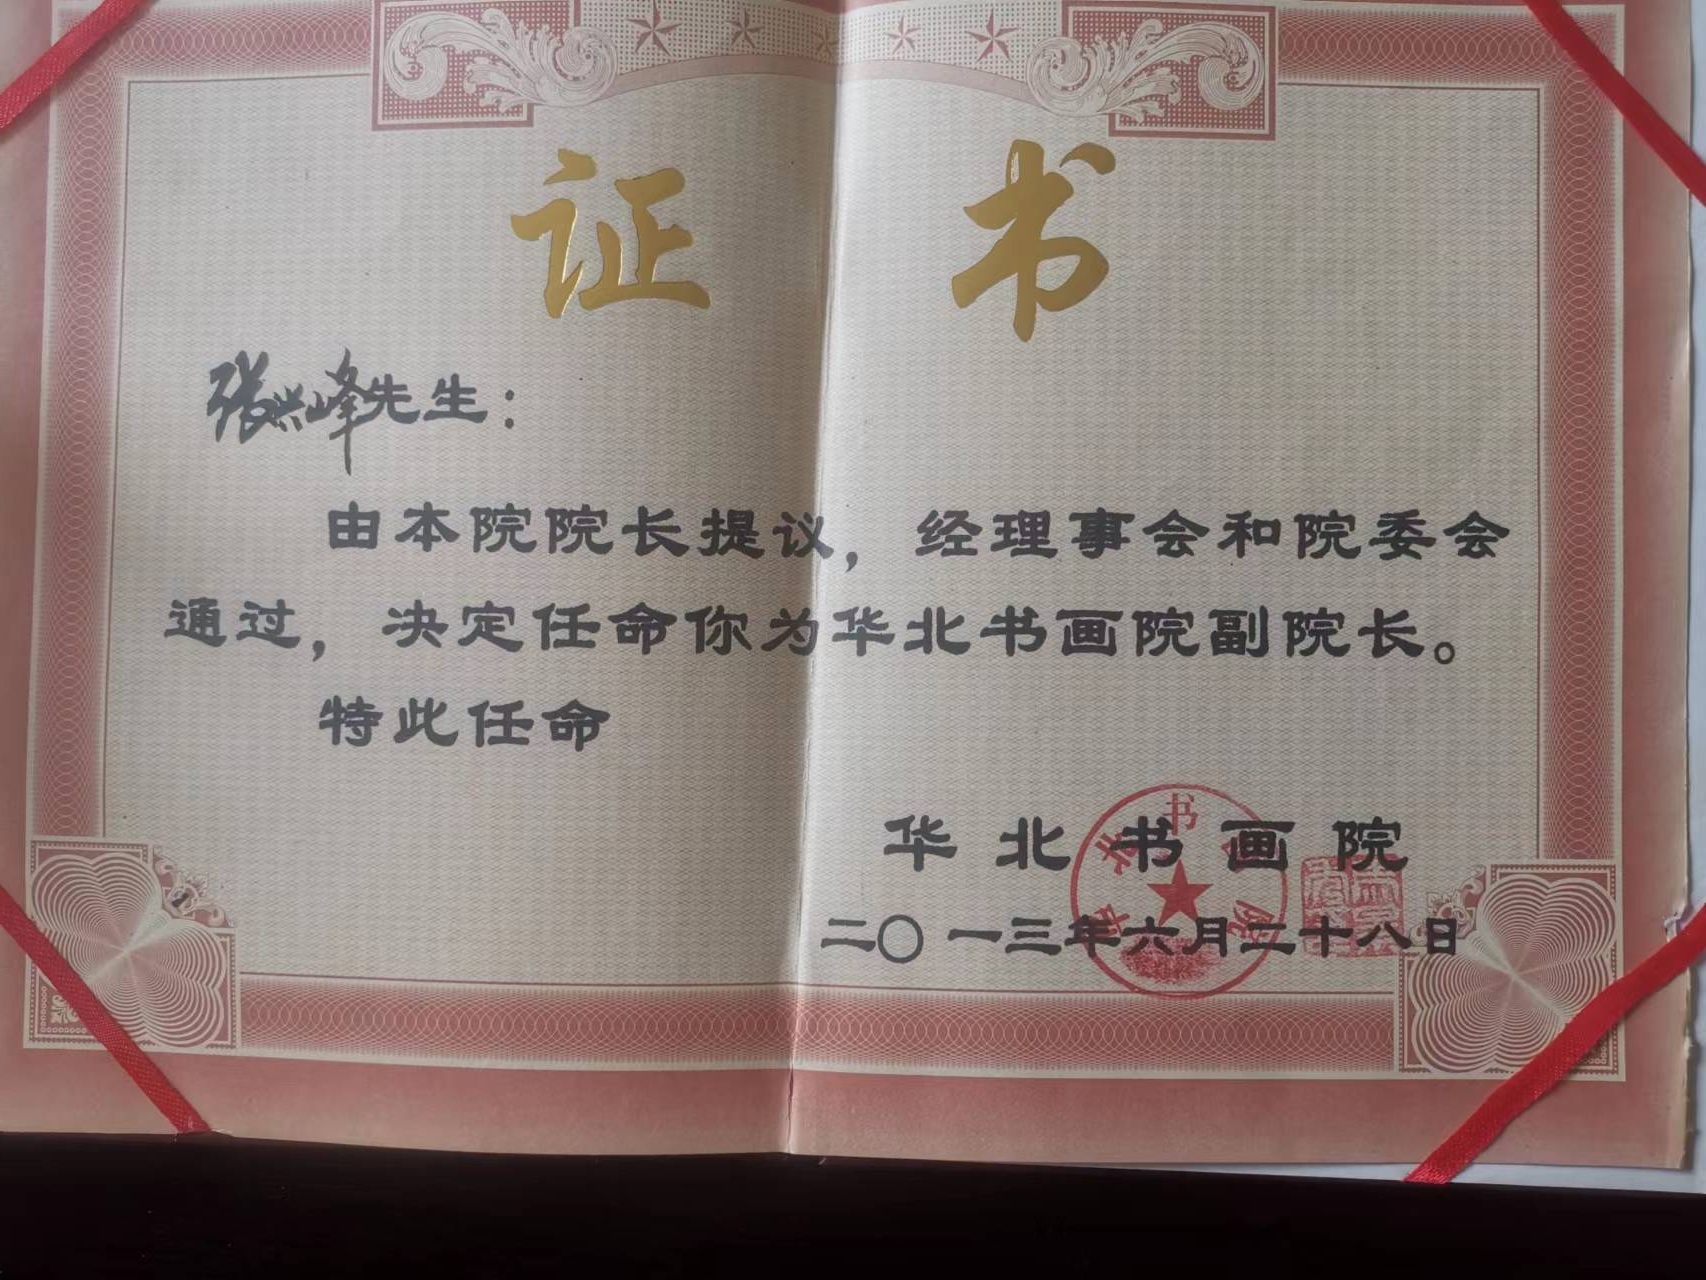 证书
张兴峰先生：
由本院院长提议，经理事会和院委会
通过，决定任命你为华北书画院副院长。
特此任命
华北书画院
二〇一三年六月二十八日
华北书画院